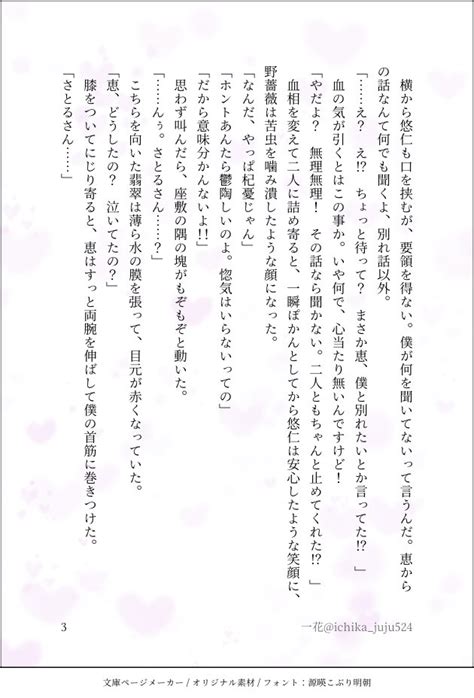 横から悠仁も口を挟むが、要領を得ない。僕が何を聞いてないって言うんだ。恵から
の話なんて何でも聞くよ、別れ話以外。
「……え？　え!?　ちょっと待って？　まさか恵、僕と別れたいとか言ってた!?　」
血の気が引くとはこの事か。いや何で、心当たり無いんですけど！
「やだよ？　無理無理！　その話なら聞かない。二人ともちゃんと止めてくれた!?　」
血相を変えて二人に詰め寄ると、一瞬ぽかんとしてから悠仁は安心したような笑顔に、
野薔薇は苦虫を噛み潰したような顔になった。
「なんだ、やっぱ杞憂じゃん」
「ホントあんたら鬱陶しいのよ。惚気はいらないっての」
「だから意味分かんないよ!!」
思わず叫んだら、座敷の隅の塊がもぞもぞと動いた。
「……んぅ。さとるさん……？」
こちらを向いた翡翠は薄ら水の膜を張って、目元が赤くなっていた。
「恵、どうしたの？　泣いてたの？」
膝をついてにじり寄ると、恵はすっと両腕を伸ばして僕の首筋に巻きつけた。
「さとるさん……」
3
一花@ichika_juju524
文庫ページメーカー / オリジナル素材 / フォント：源暎こぶり明朝